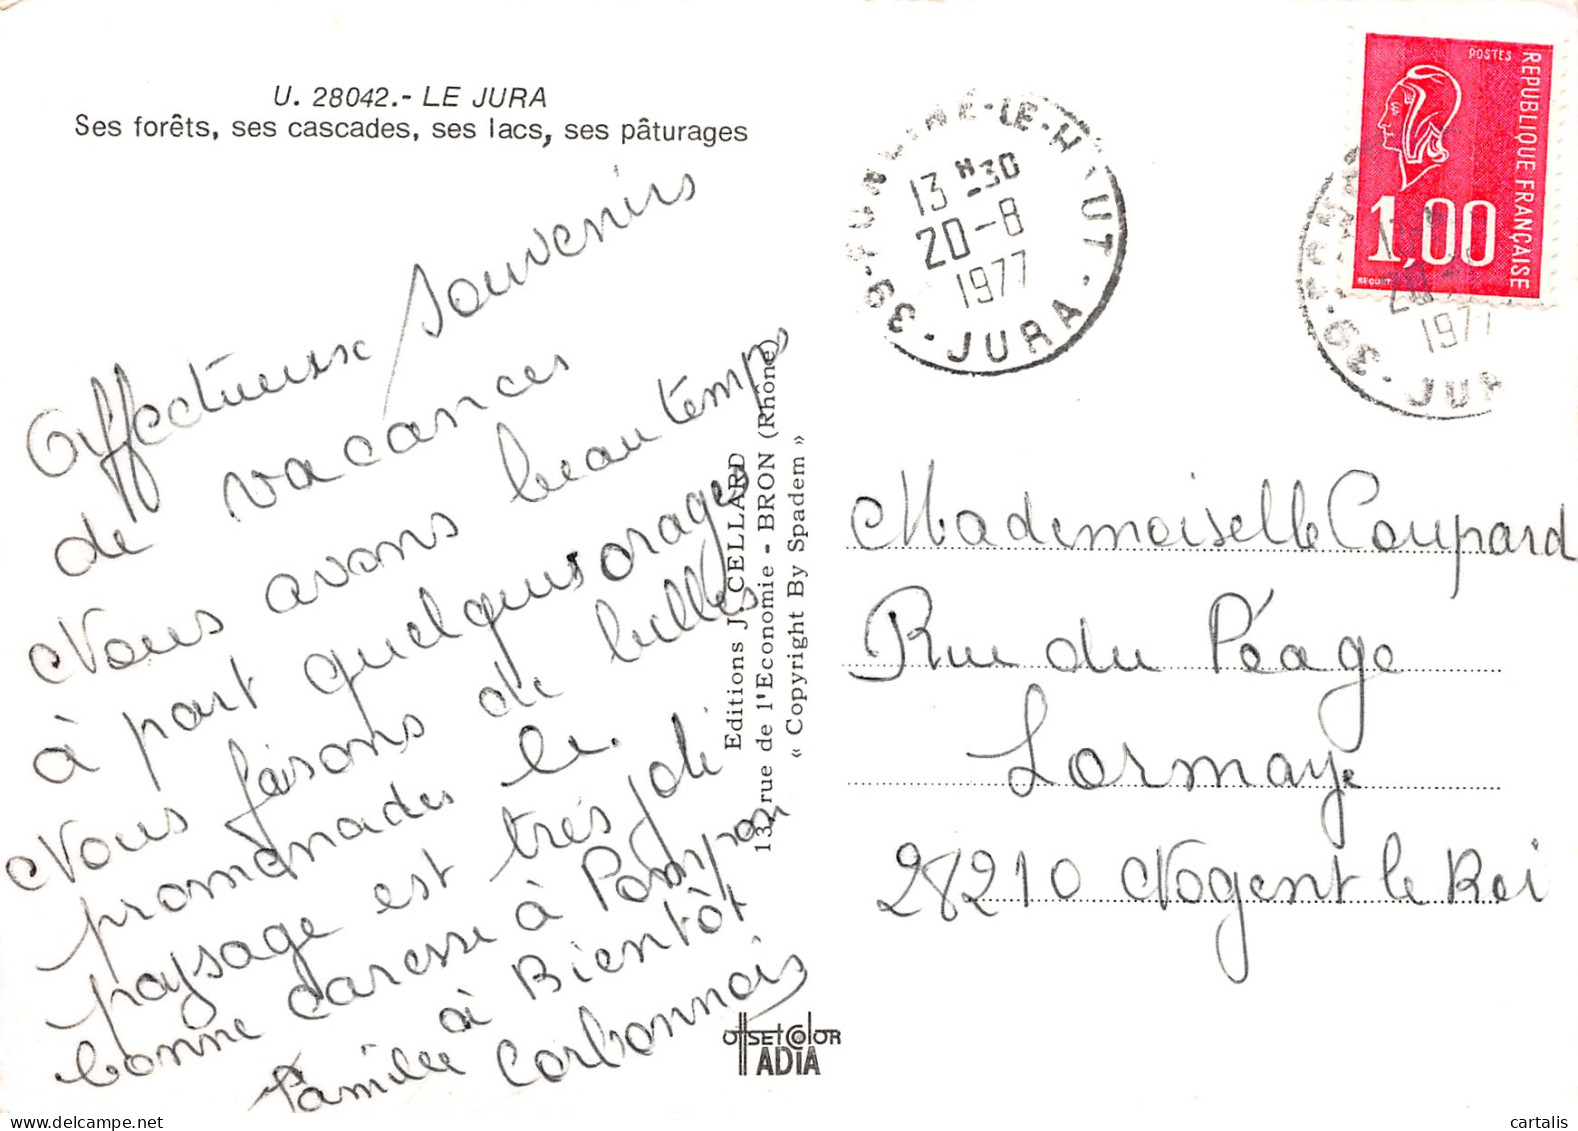 U. 28042.- LE JURA
Ses forêts, ses cascades, ses lacs, ses pâturages
Affectueux Souvenirs
de vacances
Nous avons beau temps
à part quelques orages
Nous faisons de belles
promenades le
paysage est très joli
bonne caresse à Pompon
à Bientôt
Famille Corbonnois
Editions J. CELLARD
13, rue de l'Economie - BRON (Rhône)
« Copyright By Spadem »
OffSETCOlOR
IADIA
LE-HAUT
13 H -30
20-8
1977
39 · JURA
POSTES
REPUBLIQUE FRANÇAISE
1,00
20
1977
39 · JUR
Mademoiselle Coupard
Rue du Péage
Lormaye
28210 Nogent le Roi
cartalis